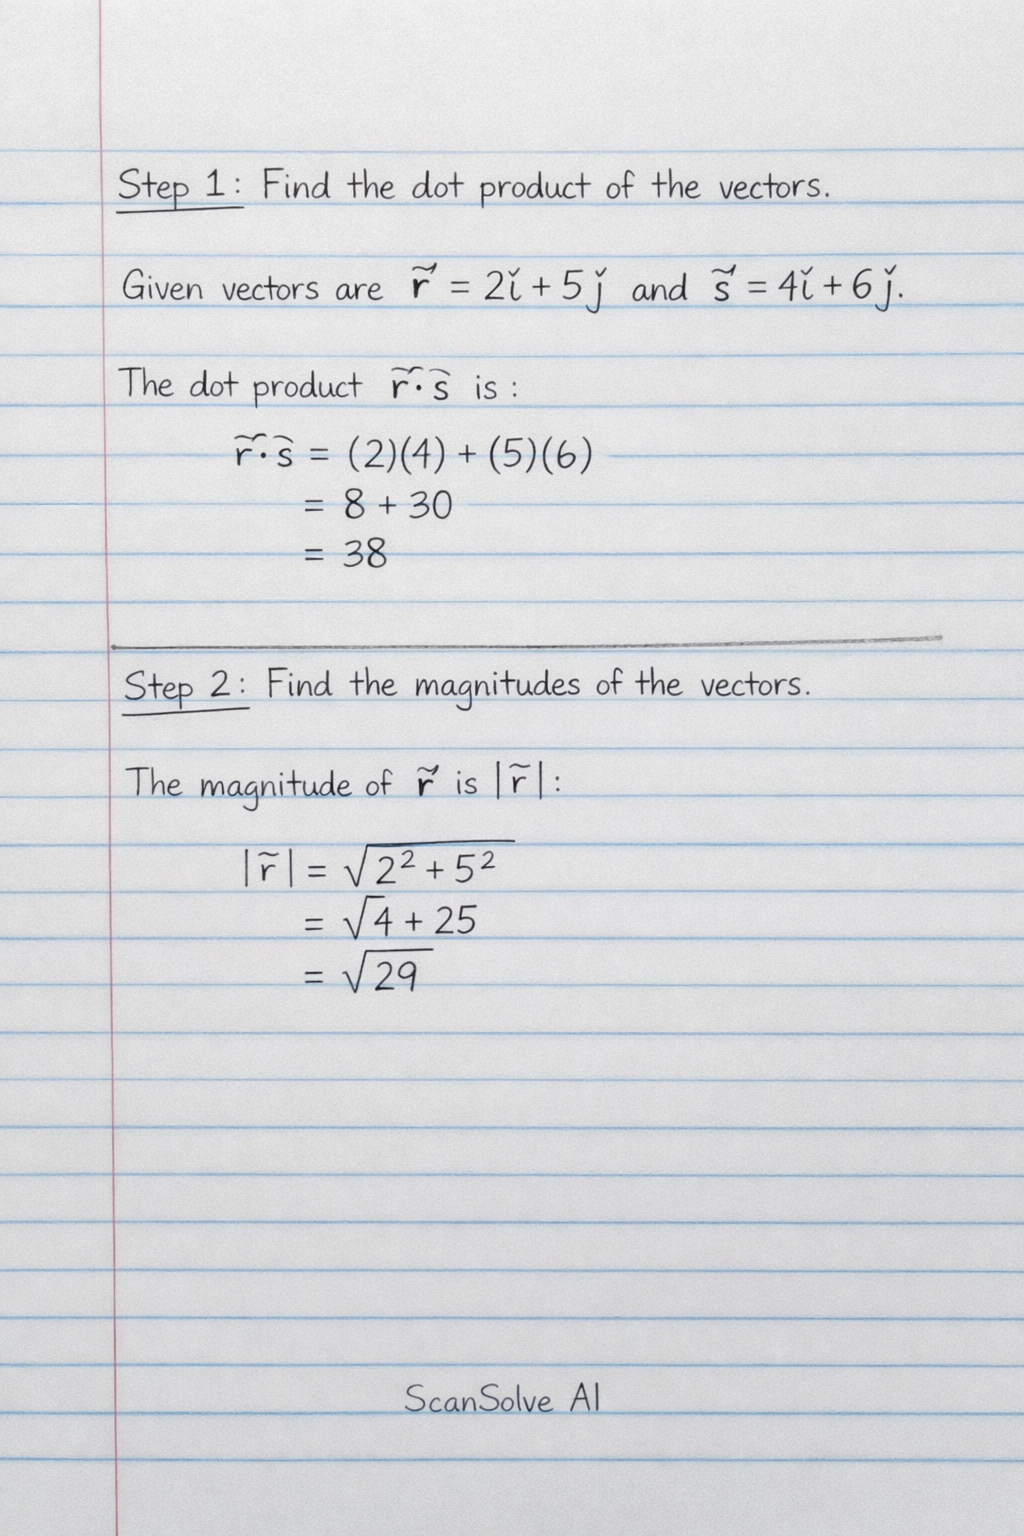 Step 1: Find the dot product of the vectors.
Given vectors are r̃ = 2ǐ + 5ǰ and s̃ = 4ǐ + 6ǰ.
The dot product r̃·s̃ is :
r̃·s̃ = (2)(4) + (5)(6)
= 8 + 30
= 38
Step 2: Find the magnitudes of the vectors.
The magnitude of r̃ is |r̃|:
|r̃| = √2² + 5²
= √4 + 25
= √29
ScanSolve AI